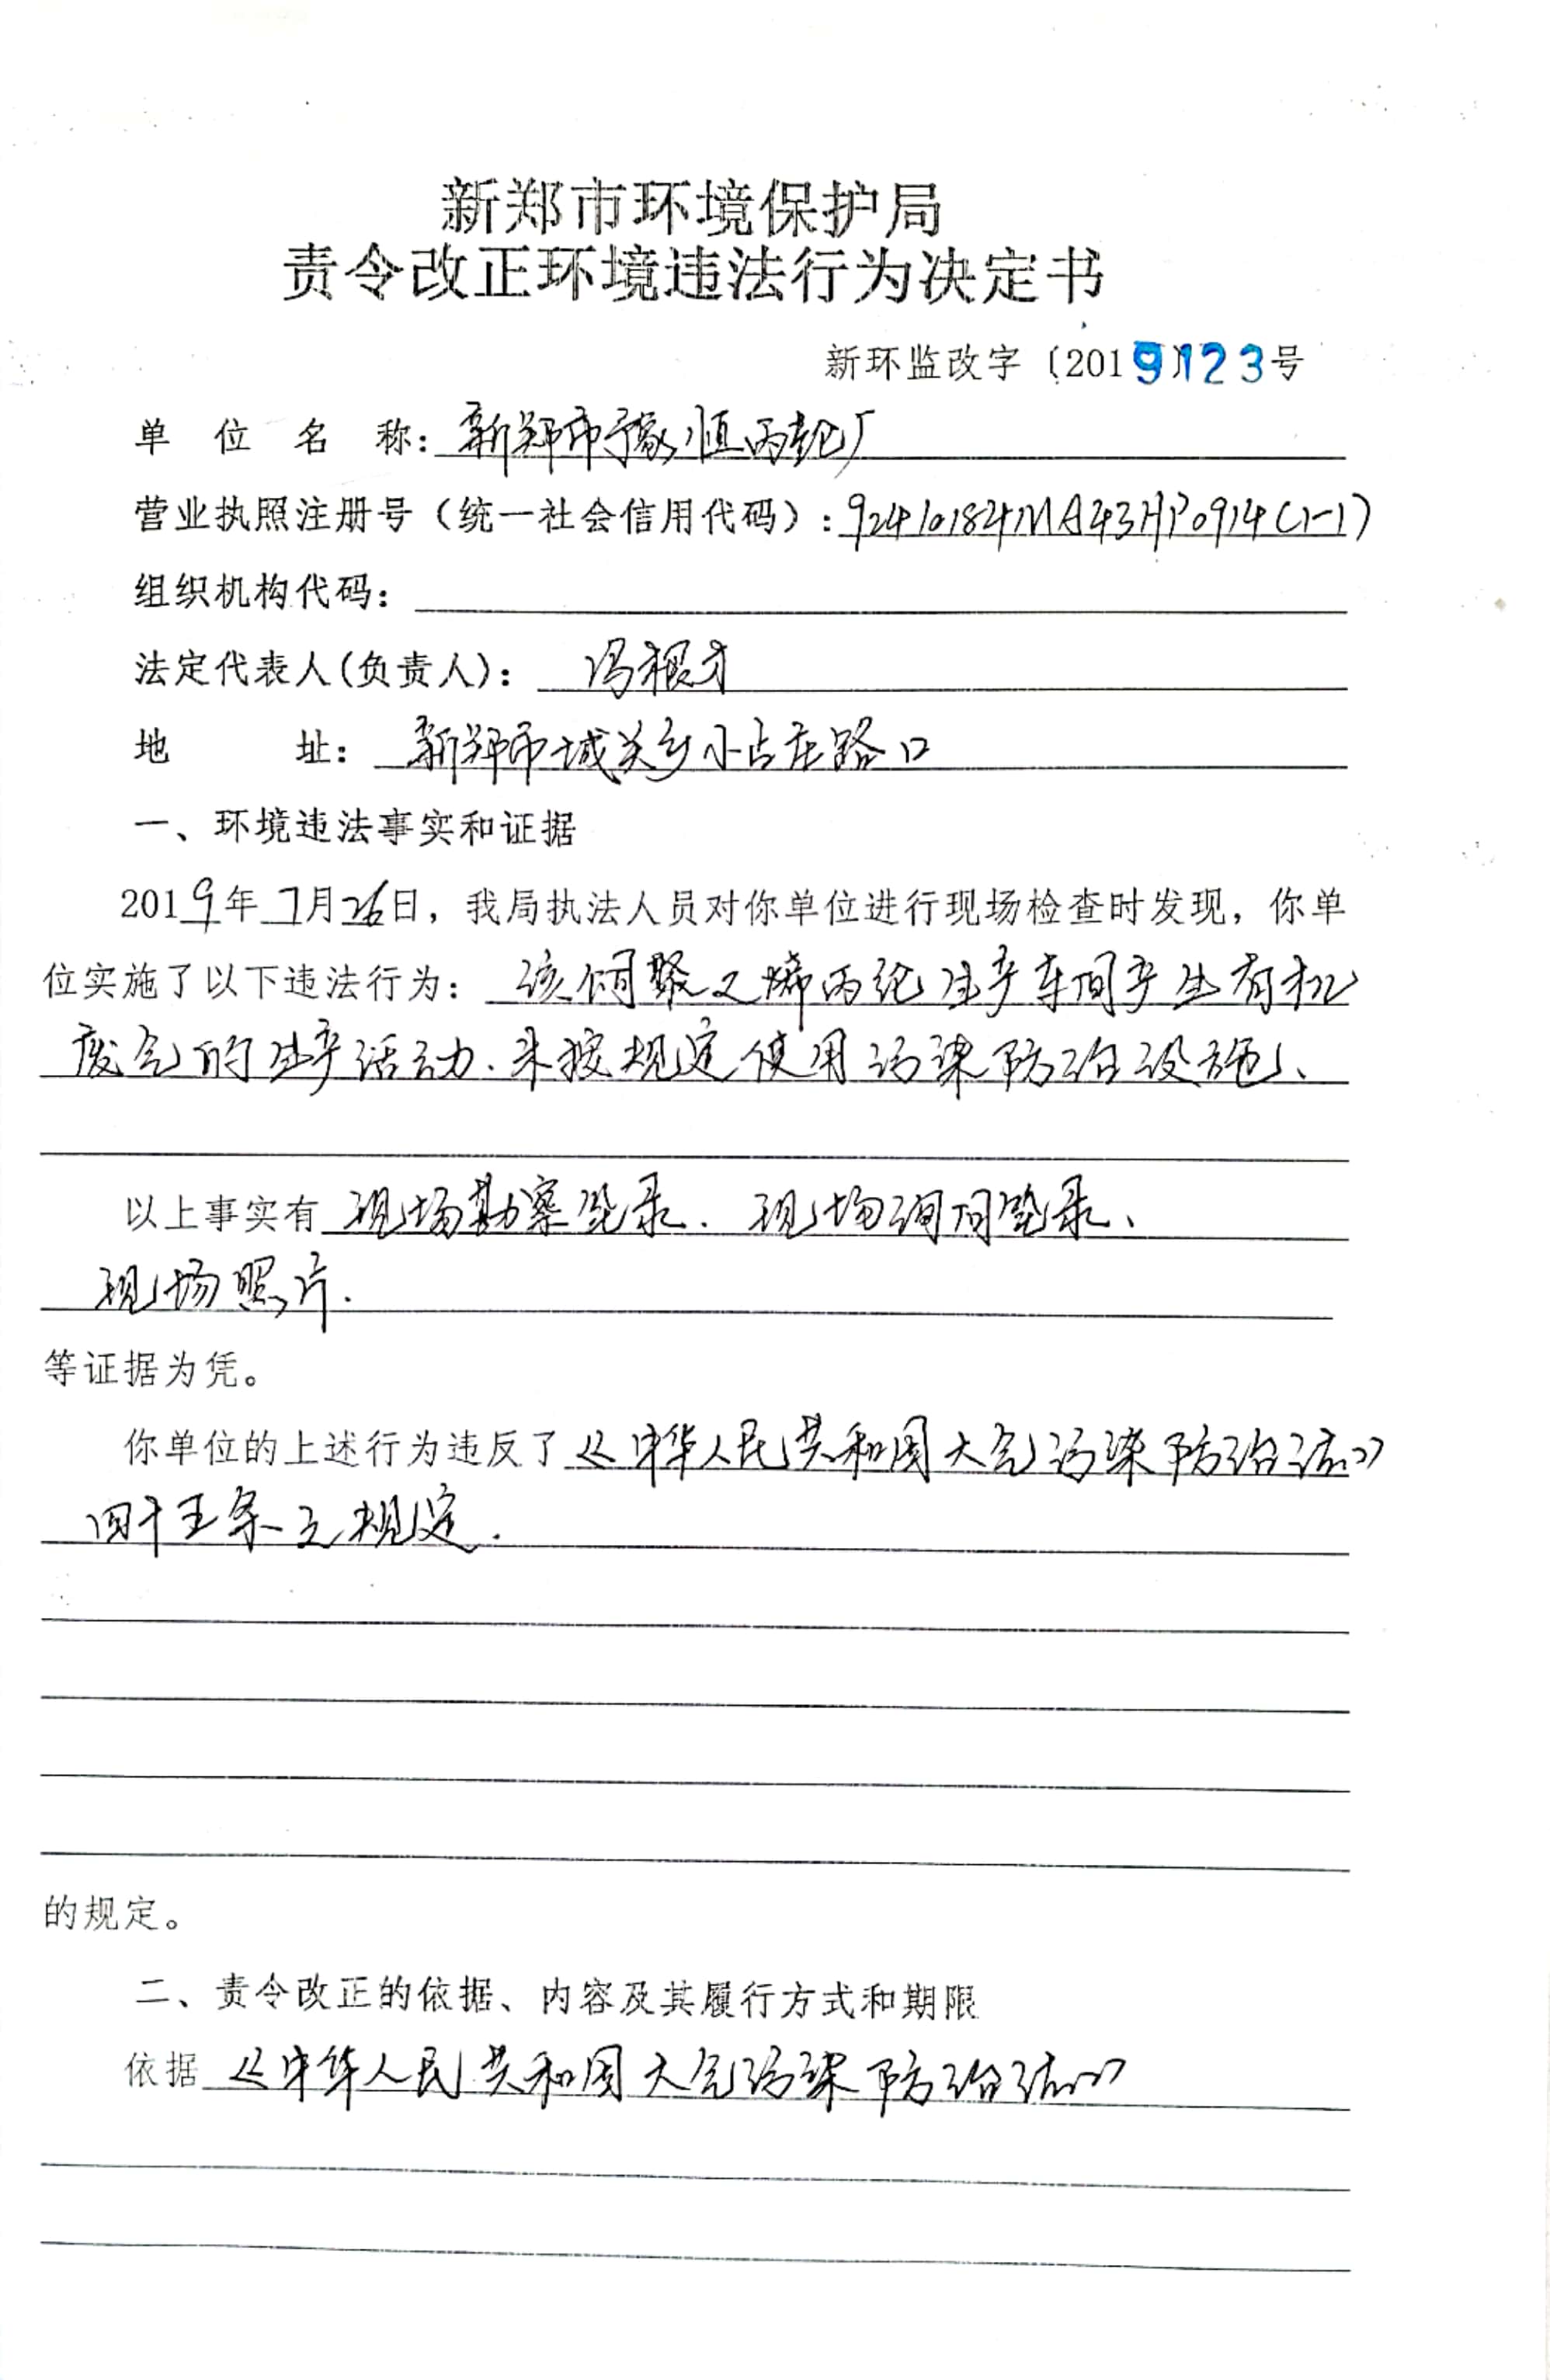 新郑市环境保护局
责令改正环境违法行为决定书
新环监改字〔2019〕123号
单位名称：新郑市豫恒丙纶厂
营业执照注册号（统一社会信用代码）：92410184MA43HP0914(1-1)
组织机构代码：
法定代表人(负责人)：冯根才
地址：新郑市城关乡小占庄路口
一、环境违法事实和证据
2019年7月26日，我局执法人员对你单位进行现场检查时发现，你单
位实施了以下违法行为：该公司聚乙烯丙纶生产车间产生有机
废气的生产活动、未按规定使用污染防治设施、
以上事实有现场勘察笔录、现场询问笔录、
现场照片.
等证据为凭。
你单位的上述行为违反了《中华人民共和国大气污染防治法》
四十五条之规定.
的规定。
二、责令改正的依据、内容及其履行方式和期限
依据《中华人民共和国大气污染防治法》